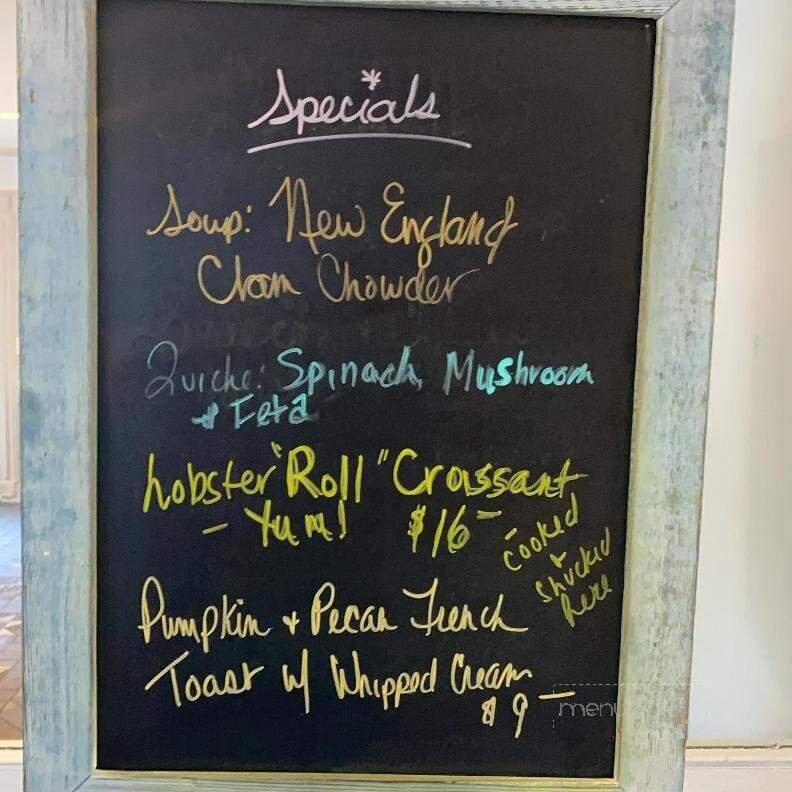 Specials
Soup: New England
Clam Chowder
Quiche: Spinach, Mushroom
& Feta
Lobster "Roll" Croissant
- Yum! $16-
Cooked
+
Shucked
here
Pumpkin + Pecan French
Toast w/ Whipped Cream
$9-
menu